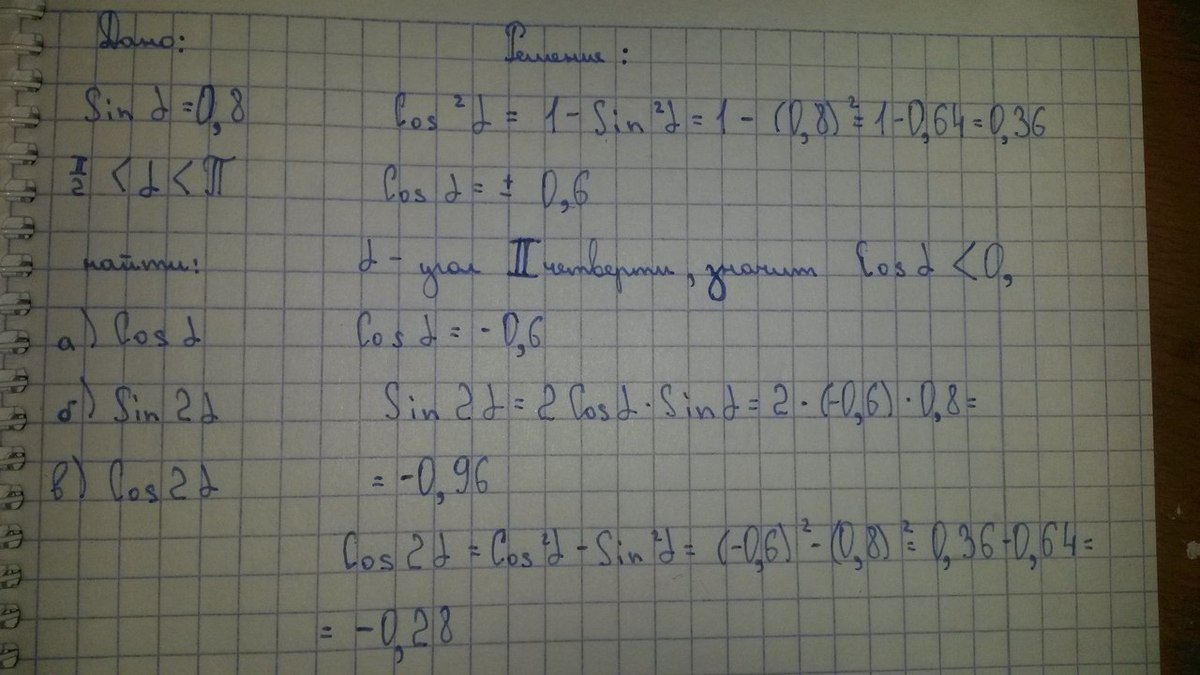 Дано:
Sin α = 0,8
π/2 < α < π
найти:
а) Cos α
б) Sin 2α
в) Cos 2α
Решение:
Cos²α = 1 - Sin²α = 1 - (0,8)² = 1 - 0,64 = 0,36
Cos α = ± 0,6
α - угол II четверти, значит Cos α < 0,
Cos α = -0,6
Sin 2α = 2 Cos α · Sin α = 2 · (-0,6) · 0,8 =
= -0,96
Cos 2α = Cos²α - Sin²α = (-0,6)² - (0,8)² = 0,36 - 0,64 =
= -0,28